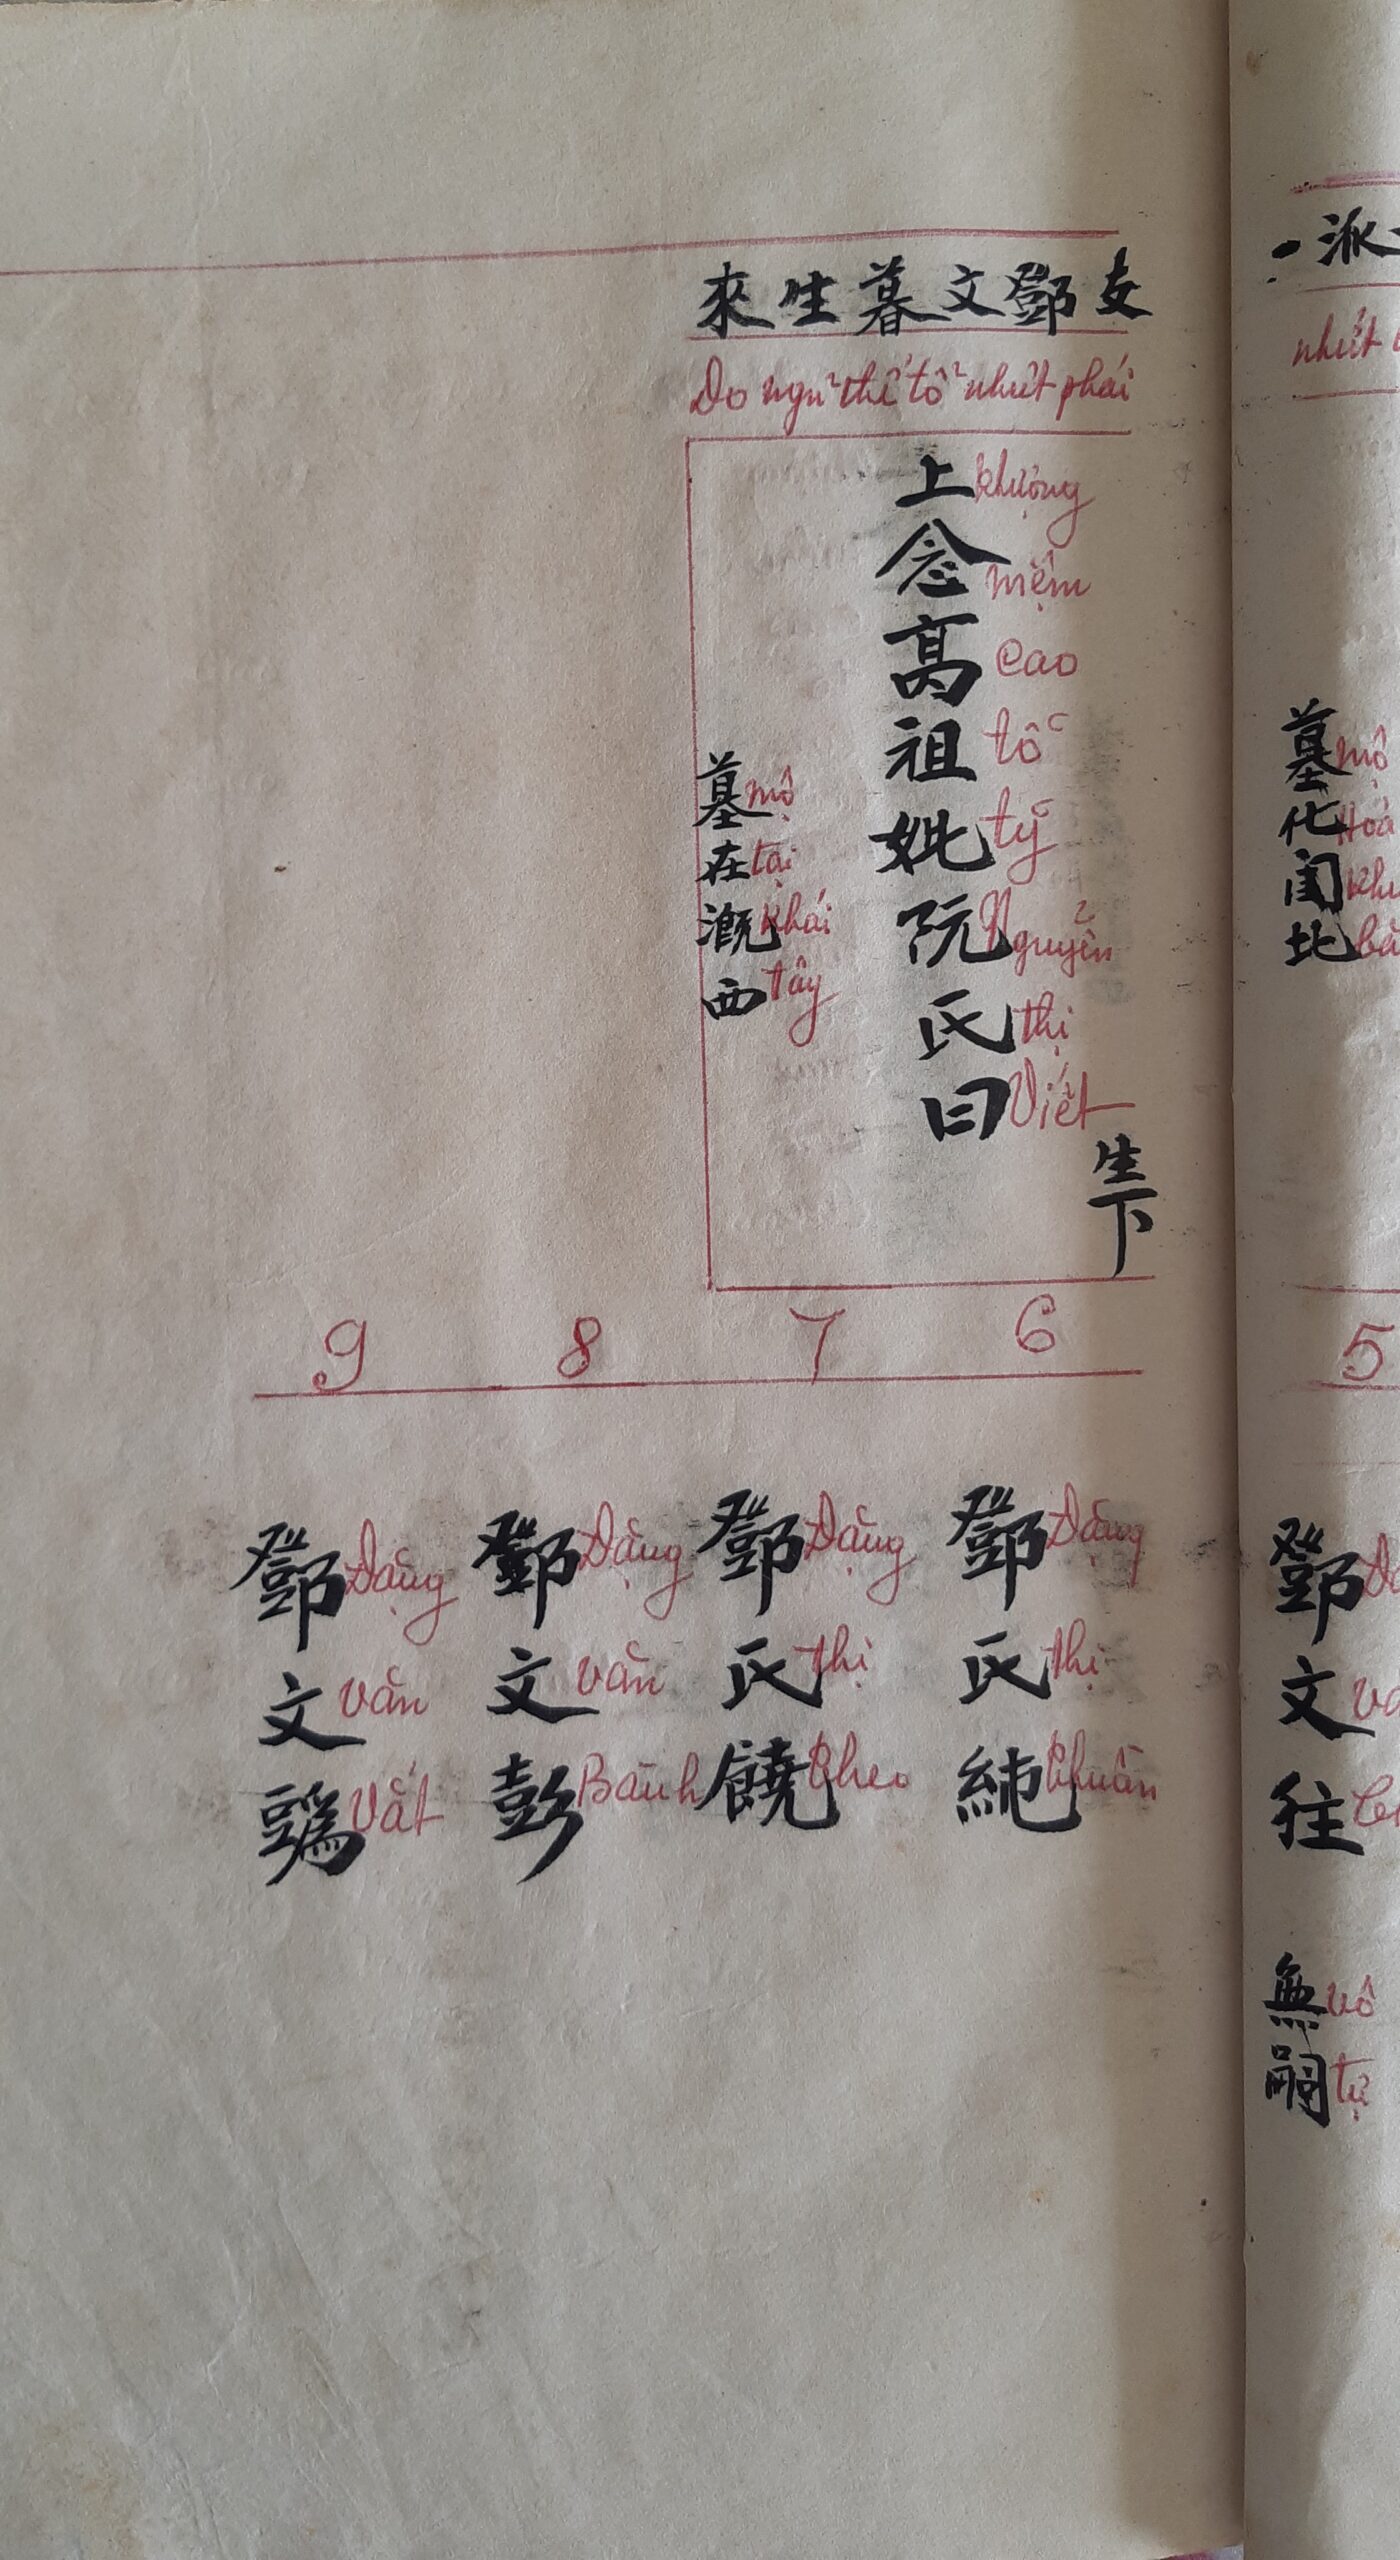 支鄧文暮生來
Do ngũ thế tổ nhứt phái
上念高祖妣阮氏曰
khượng niệm cao tổ tỷ Nguyễn thị Viết
生下
墓在溉西
mộ tại khái tây
6 7 8 9
鄧氏純
Đặng thị thuần
鄧氏饒
Đặng thị theo
鄧文彭
Đặng văn Bành
鄧文
Đặng văn Vắt
派
nhứt
墓化閏北
mộ Hoá
5
鄧文往
無嗣
vô tự